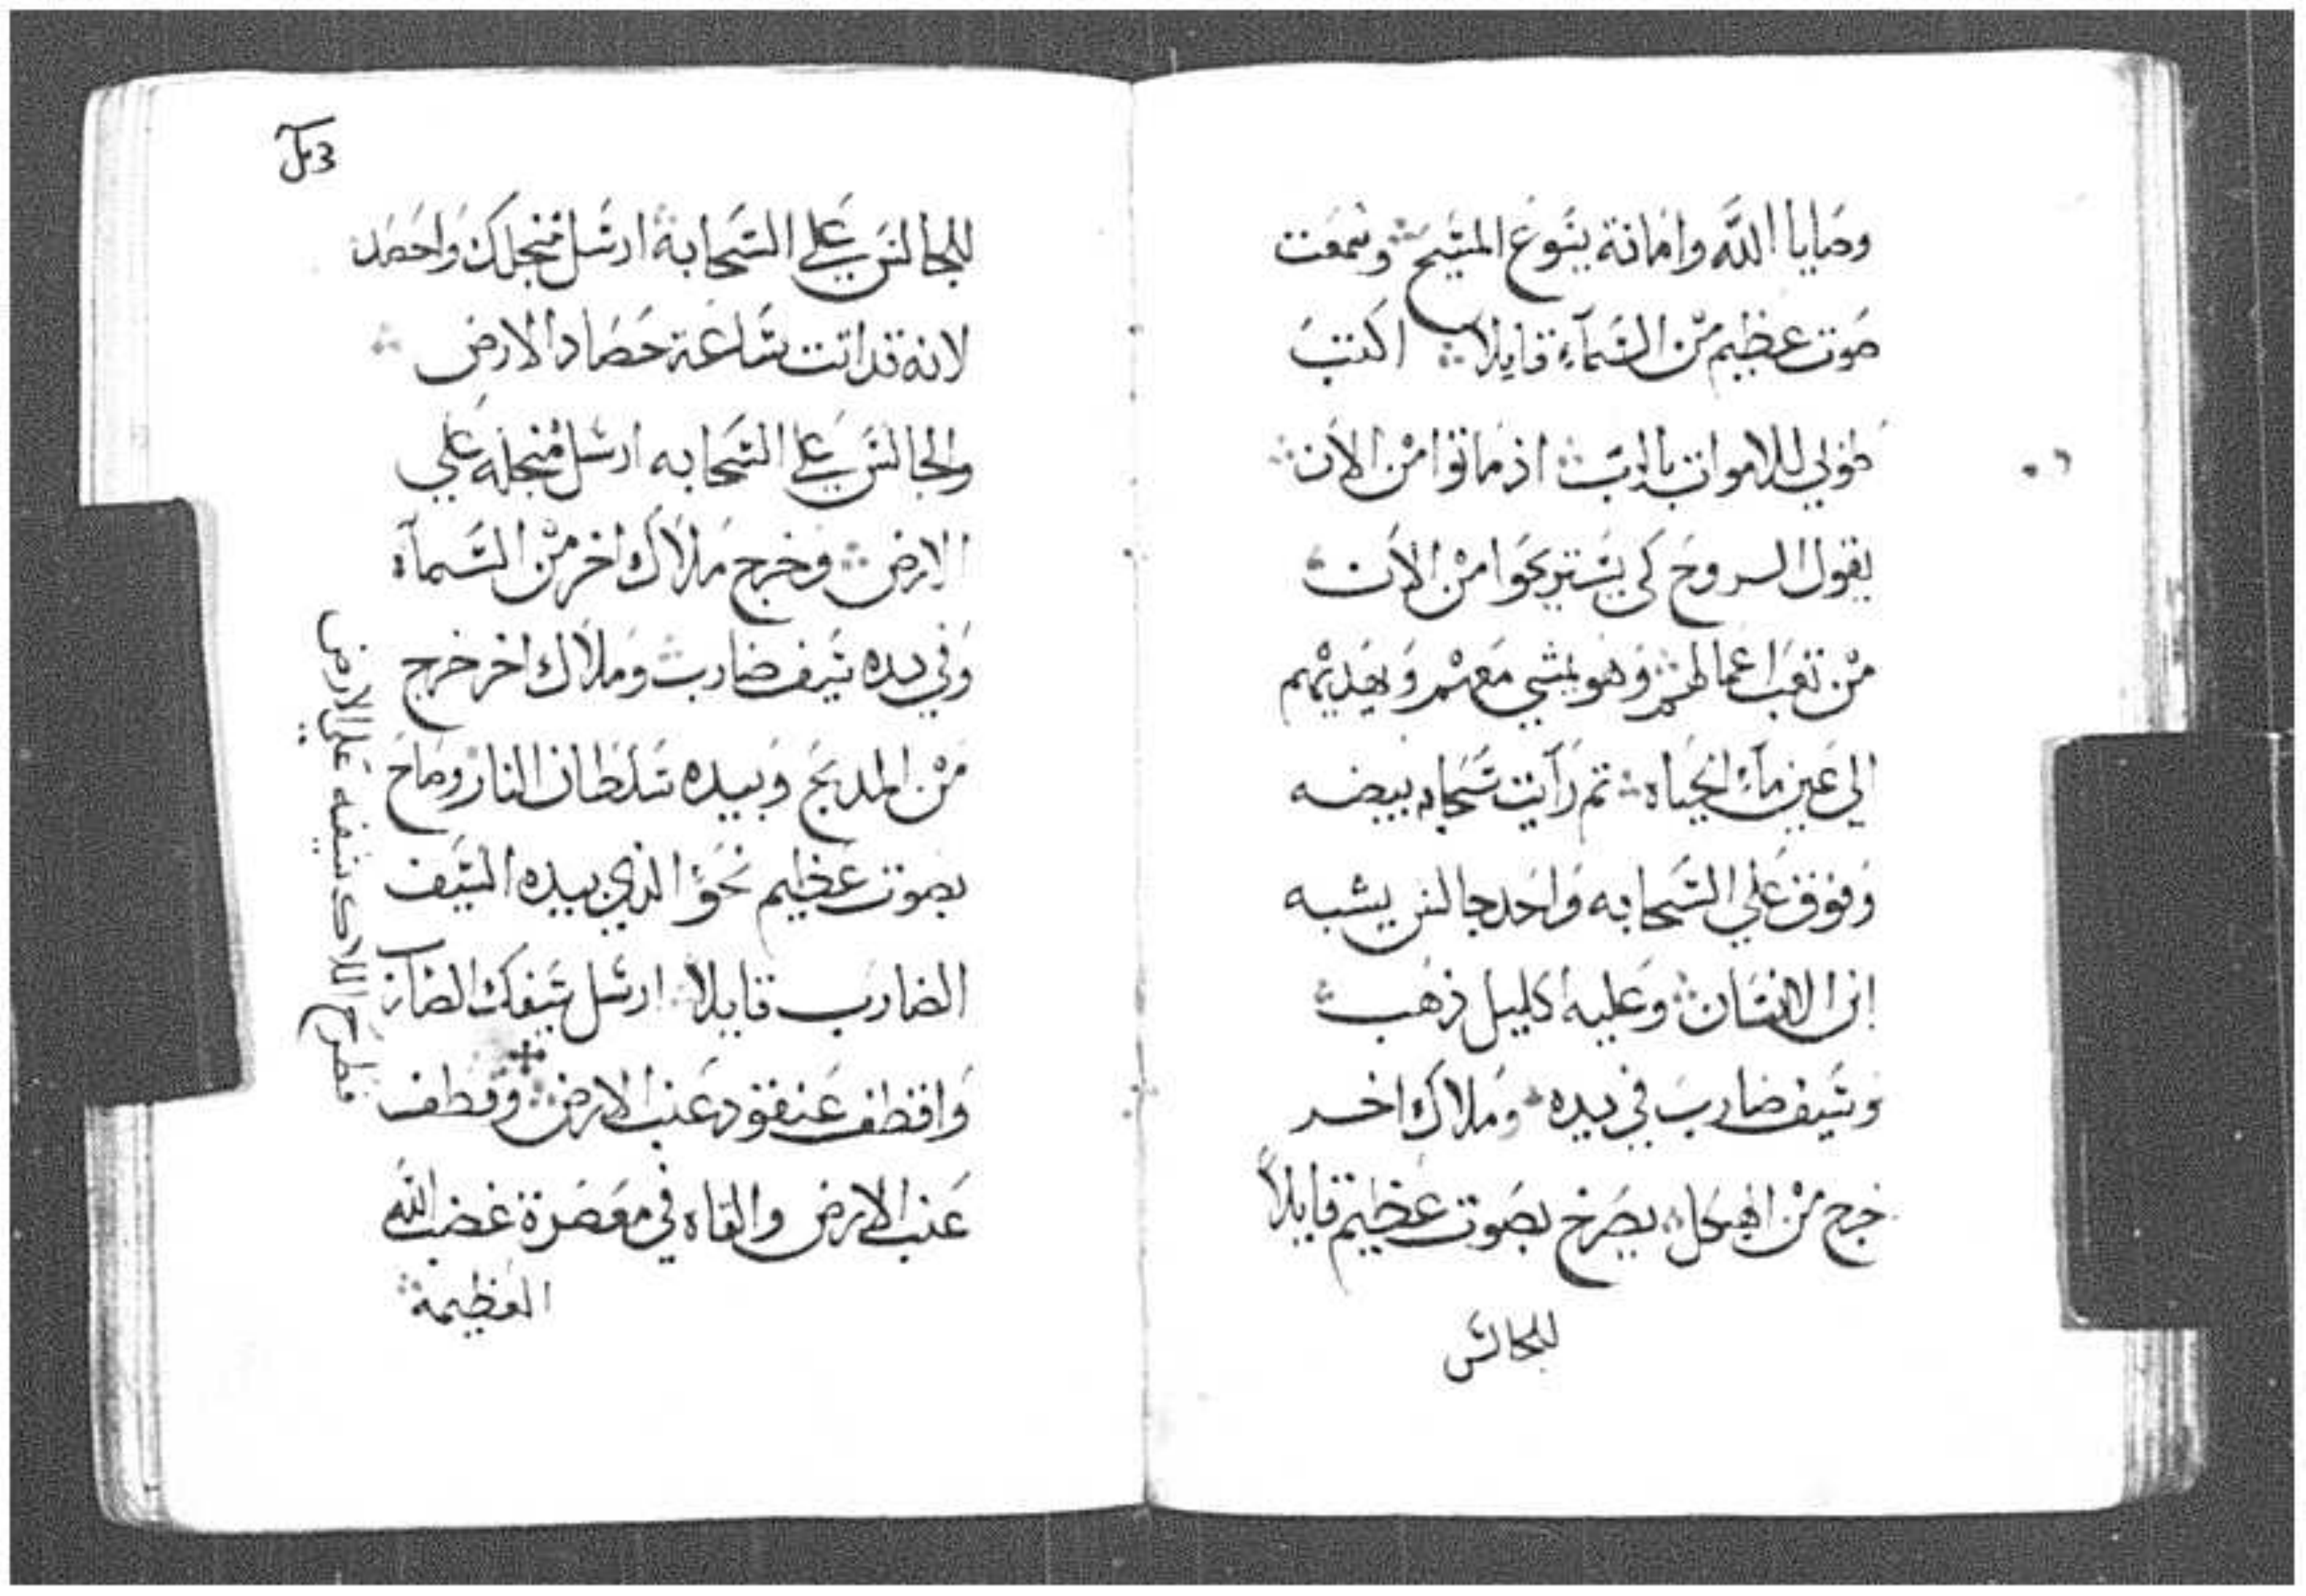 وصَايا اللَّه وامَانة يسَوعَ المسَيحَ ۞ وسَمعَت
صَوت عظيم مْن السَمآءِ قايلاً ۞ اكتبَ
طوبي للاموات بالربَ ۞ اذ ماتوا مْن الاَن ۞
يقول الروحَ كي يسَتريحَوا مْن الاَن ۞
مْن تعَب اعمالهم ۞ وَهو يمشي مَعهمْ وَيهَديهْم
الي عَين مآء الحَياه ۞ تم رَآيت سَحابه بيضه
وَفوق عَلي السَحابه وَاحَد جالسَ يشبه
ابن الانسَان ۞ وعَليه اكليل ذهَب ۞
وسَيف ضاربَ في يده ۞ ومَلاَك اخر
خرج مْن الهيكل ۞ يصَرخ بصَوت عظيم قايلاً
للجالسَ
3ل
للجالسَ عَلي السَحابة ارسَل منجلك وَاحصَد
لانه قد اتت سَاعَة حَصَاد الارض ۞
والجالسَ عَلي السَحابه ارسَل منجله عَلي
الارض ۞ وخرج مَلاَك اخر مْن السَمآء
وَفي يده سَيف ضارب ۞ وَملاَك اخر خرج
مَن المدبحَ وَبيده سَلطان النار وصَاحَ
بصَوت عَظيم نحَو الذي بيده السَيف
الضاربَ قايلاً ۞ ارسَل سَيفك الضارب
وَاقطف عَنقود عَنب الارض ۞ وقطف
عَنب الارض والقاه في معَصَرة غضب اللَّه
العَظيمة ۞
فطرح الملاك سَيفه عَلي الارض